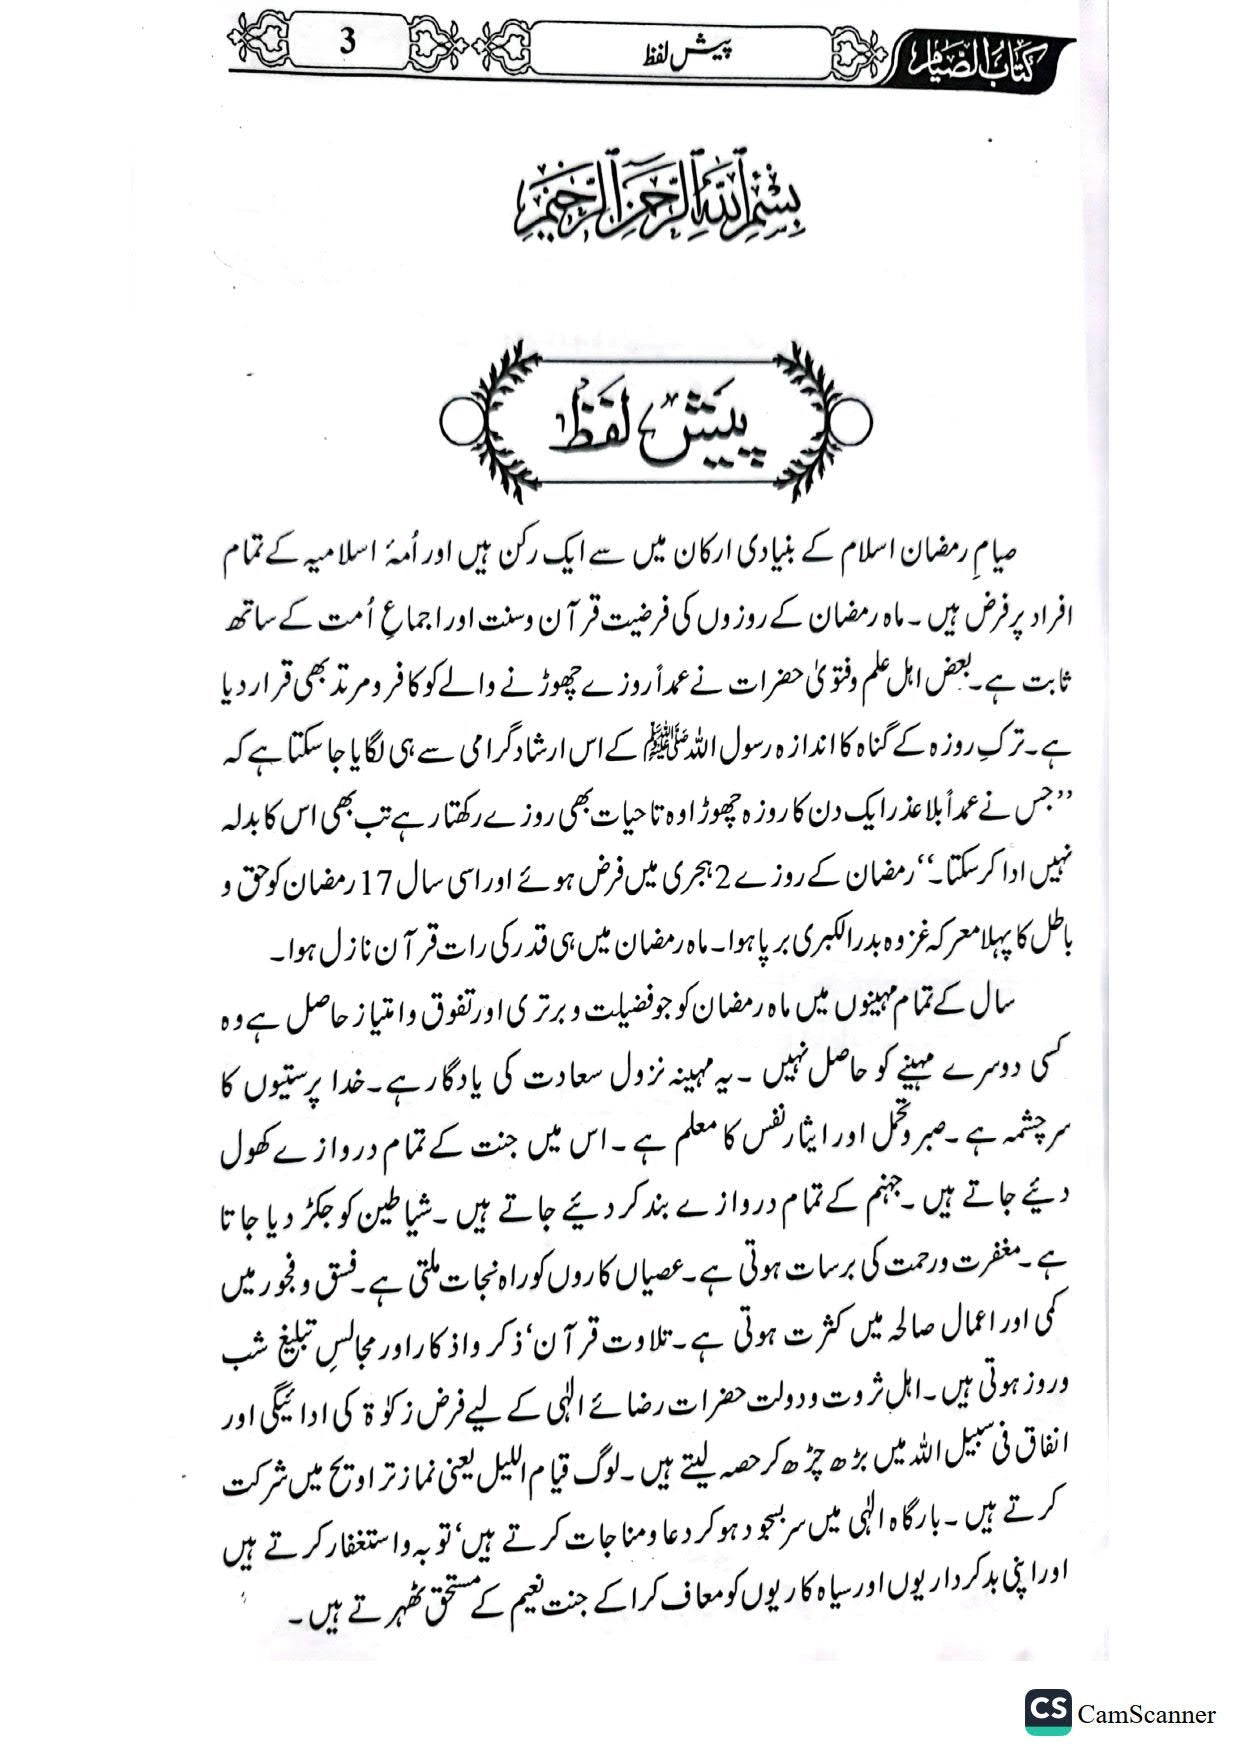 کتاب الصیام
پیش لفظ
3
بِسْمِ اللّٰهِ الرَّحْمٰنِ الرَّحِيْمِ
پیش لفظ
صیامِ رمضان اسلام کے بنیادی ارکان میں سے ایک رکن ہیں اور اُمۂ اسلامیہ کے تمام
افراد پر فرض ہیں ۔ ماہ رمضان کے روزوں کی فرضیت قرآن و سنت اور اجماعِ اُمت کے ساتھ
ثابت ہے۔ بعض اہل علم و فتویٰ حضرات نے عمداً روزے چھوڑنے والے کو کافر و مرتد بھی قرار دیا
ہے۔ ترکِ روزہ کے گناہ کا اندازہ رسول اللہ ﷺ کے اس ارشاد گرامی سے ہی لگایا جا سکتا ہے کہ
’’جس نے عمداً بلا عذر ایک دن کا روزہ چھوڑا وہ تاحیات بھی روزے رکھتا رہے تب بھی اس کا بدلہ
نہیں ادا کر سکتا۔‘‘ رمضان کے روزے 2 ہجری میں فرض ہوئے اور اسی سال 17 رمضان کو حق و
باطل کا پہلا معرکہ غزوہ بدر الکبری برپا ہوا۔ ماہ رمضان میں ہی قدر کی رات قرآن نازل ہوا۔
سال کے تمام مہینوں میں ماہ رمضان کو جو فضیلت و برتری اور تفوق و امتیاز حاصل ہے وہ
کسی دوسرے مہینے کو حاصل نہیں ۔ یہ مہینہ نزول سعادت کی یادگار ہے۔ خدا پرستیوں کا
سرچشمہ ہے ۔ صبر و تحمل اور ایثار نفس کا معلم ہے ۔ اس میں جنت کے تمام دروازے کھول
دئیے جاتے ہیں ۔ جہنم کے تمام دروازے بند کر دئیے جاتے ہیں ۔ شیاطین کو جکڑ دیا جاتا
ہے ۔ مغفرت و رحمت کی برسات ہوتی ہے۔ عصیاں کاروں کو راہ نجات ملتی ہے۔ فسق و فجور میں
کمی اور اعمال صالحہ میں کثرت ہوتی ہے۔ تلاوت قرآن‘ ذکر و اذکار اور مجالسِ تبلیغ شب
و روز ہوتی ہیں۔ اہل ثروت و دولت حضرات رضائے الٰہی کے لیے فرض زکوٰۃ کی ادائیگی اور
انفاق فی سبیل اللہ میں بڑھ چڑھ کر حصہ لیتے ہیں ۔ لوگ قیام اللیل یعنی نماز تراویح میں شرکت
کرتے ہیں ۔ بارگاہ الٰہی میں سر بسجود ہو کر دعا و مناجات کرتے ہیں‘ توبہ و استغفار کرتے ہیں
اور اپنی بدکرداریوں اور سیاہ کاریوں کو معاف کرا کے جنت نعیم کے مستحق ٹھہرتے ہیں ۔
CS CamScanner